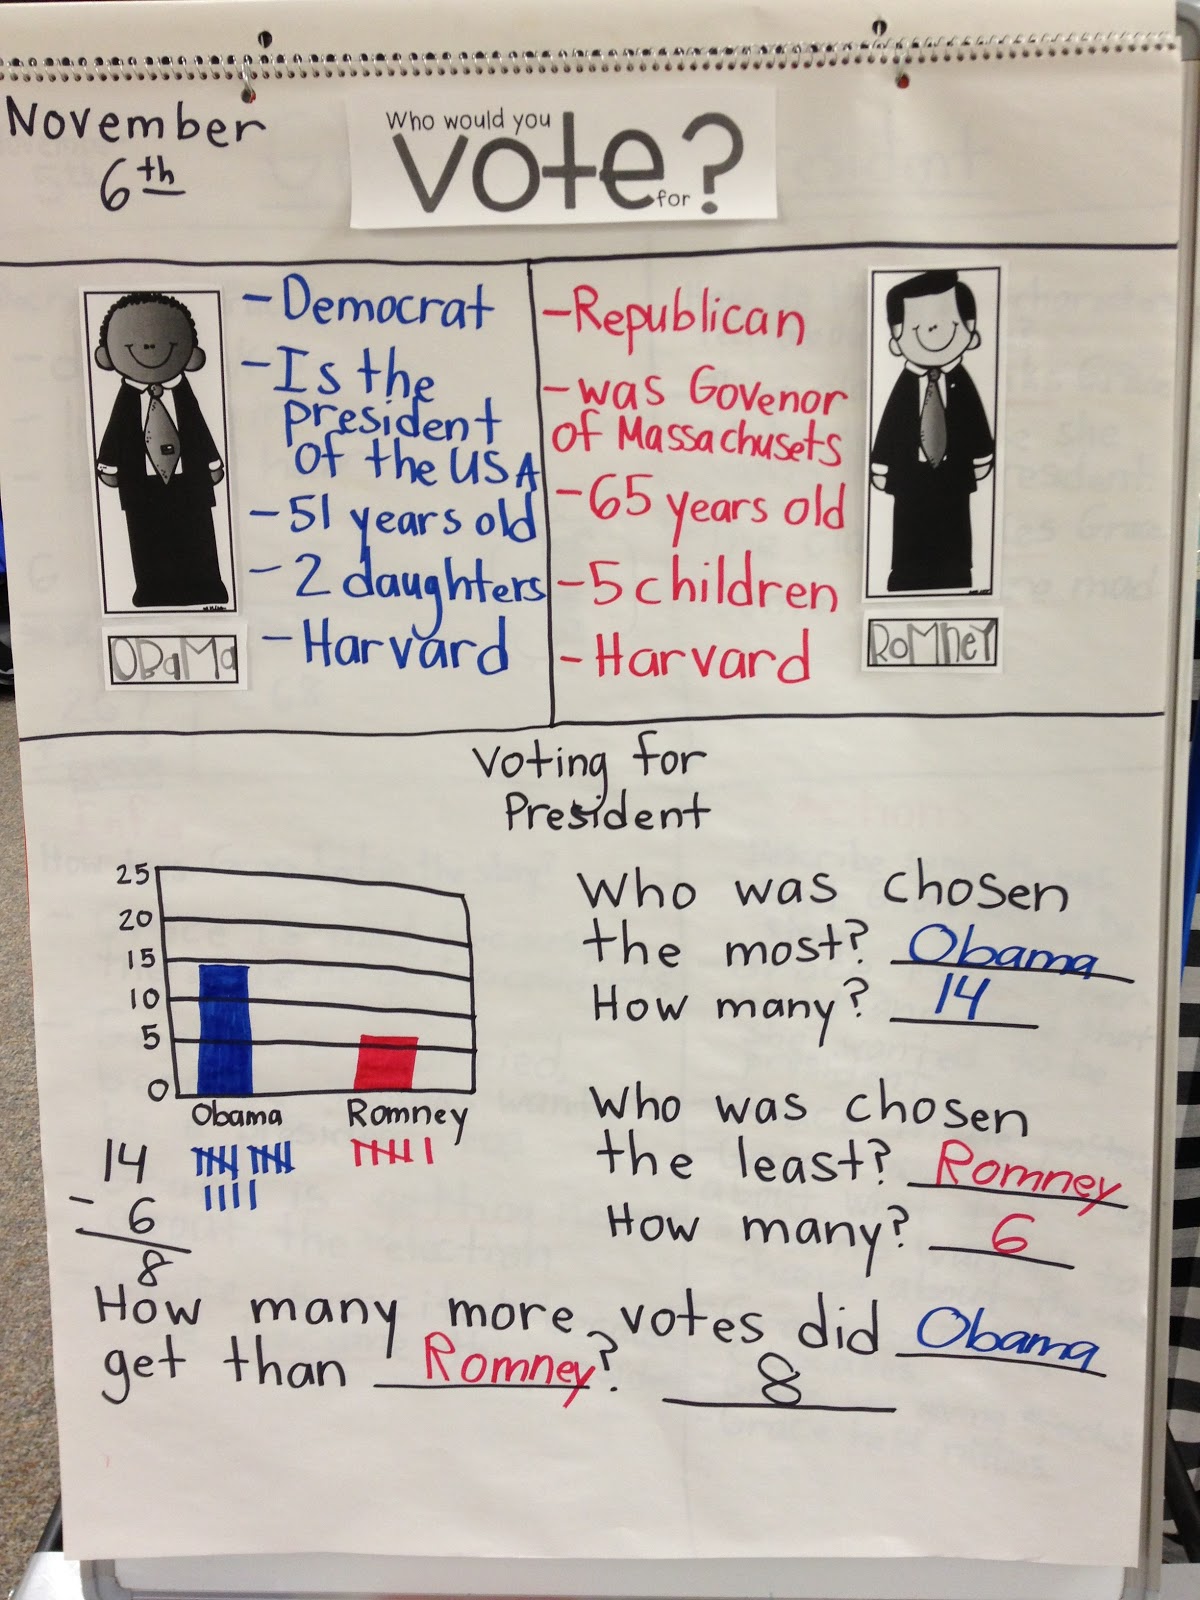 November
6th
Who would you
vote for?
- Democrat
- Is the
president
of the USA
- 51 years old
- 2 daughters
- Harvard
OBaMa
- Republican
- was Govenor
of Massachusets
- 65 years old
- 5 children
- Harvard
RoMNeY
Voting for
President
25
20
15
10
5
0
Obama
Romney
14
- 6
8
Who was chosen
the most? Obama
How many? 14
Who was chosen
the least? Romney
How many? 6
How many more votes did Obama
get than Romney? 8